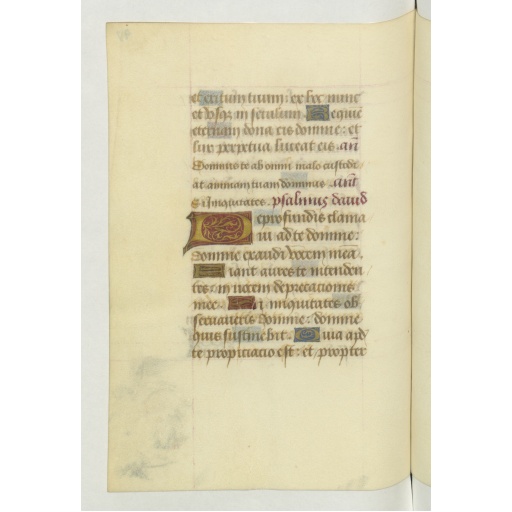 et exitum tuum: ex hoc nunc
et vsq; in seculum. Requiē
eternam dona eis domine: et
lux perpetua luceat eis. an̄
Dominus te ab omni malo custodi
at animam tuam dominus. ant̄
Si iniquitates. psalmus dauid
De profundis clama
ui ad te domine:
Domine exaudi vocem meā.
Fiant aures te intenden
tes: in vocem deprecationis
mee. Si iniquitates ob
seruaueris domine: domine
quis sustinebit. Quia apd
te propiciacio est: et propter